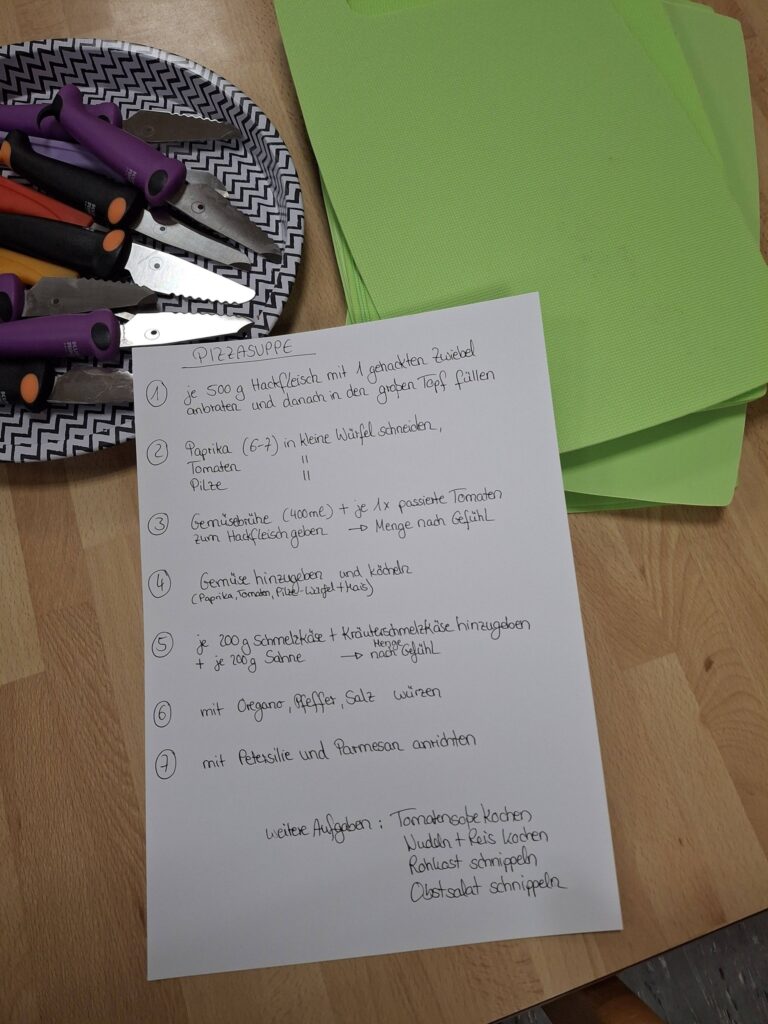 PIZZASUPPE
1 je 500g Hackfleisch mit 1 gehackten Zwiebel
anbraten und danach in den großen Topf füllen
2 Paprika (6-7) in kleine Würfel schneiden,
Tomaten "
Pilze "
3 Gemüsebrühe (400ml) + je 1x passierte Tomaten
zum Hackfleisch geben → Menge nach Gefühl
4 Gemüse hinzugeben und köcheln
(Paprika, Tomaten, Pilze-Würfel + Mais)
5 je 200g Schmelzkäse + Kräuterschmelzkäse hinzugeben
+ je 200g Sahne → Menge nach Gefühl
6 mit Oregano, Pfeffer, Salz würzen
7 mit Petersilie und Parmesan anrichten
weitere Aufgaben: Tomatensoße kochen
Nudeln + Reis kochen
Rohkost schnippeln
Obstsalat schnippeln